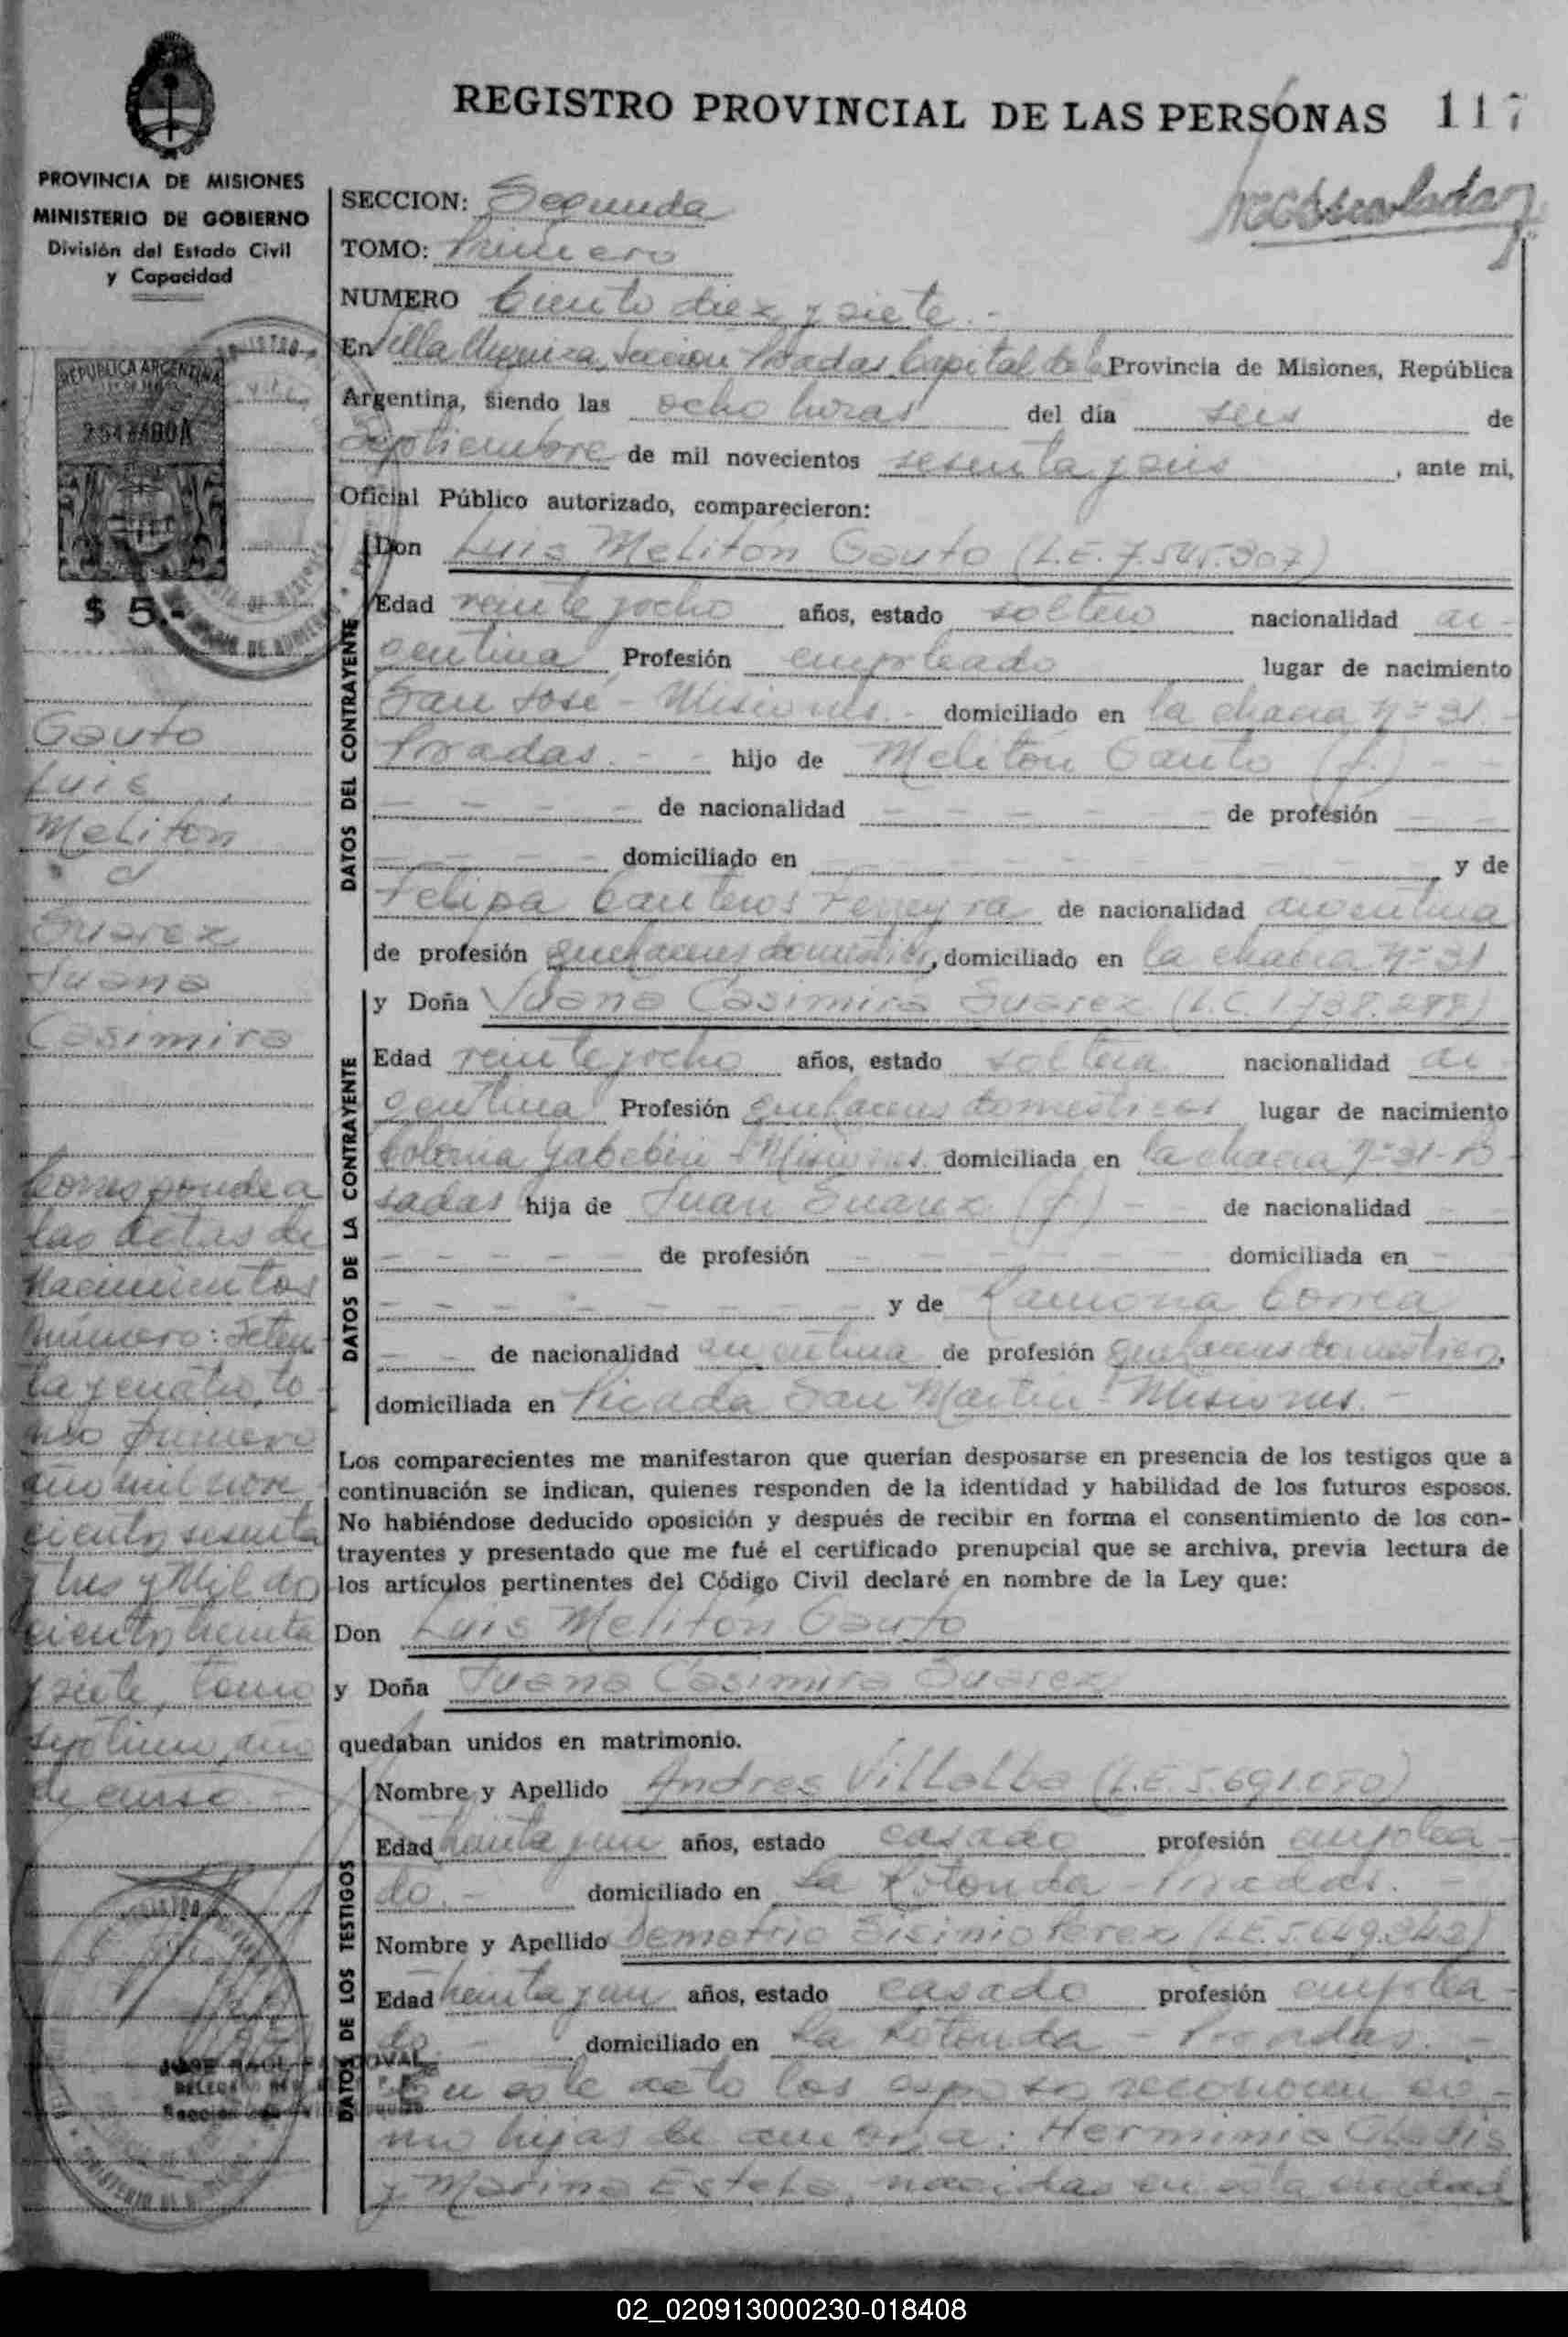 REGISTRO PROVINCIAL DE LAS PERSONAS 117
PROVINCIA DE MISIONES
MINISTERIO DE GOBIERNO
División del Estado Civil
y Capacidad
REPUBLICA ARGENTINA
$ 5.-
Gauto
Luis
Meliton
Suarez
Juana
Casimira
Corresponde a
las actas de
Nacimientos
número: Seten
ta y cuatro, to
mo primero
año mil nove
cientos sesenta
y tres y Mil dos
cientos treinta
y siete, tomo
septimo, año
de curso.-
SECCION: Segunda
TOMO: Primero
NUMERO Ciento diez y siete.-
En Villa Urquiza, Sección Posadas, Capital de la Provincia de Misiones, República
Argentina, siendo las ocho horas del día seis de
Septiembre de mil novecientos sesenta y seis, ante mi,
Oficial Público autorizado, comparecieron:
DATOS DEL CONTRAYENTE
Don Luis Melitón Gauto (L.E. 7.545.307)
Edad veinte y ocho años, estado soltero nacionalidad ar-
gentina Profesión empleado lugar de nacimiento
San José - Misiones.- domiciliado en la chacra Nº 31.-
Posadas.- - hijo de Melitón Gauto (f.) - -
- - - - - de nacionalidad - - - - de profesión - -
- - - - - domiciliado en - - - - - - - - y de
Felipa Canteros Ferreyra de nacionalidad argentina
de profesión quehaceres domésticos, domiciliado en la chacra Nº 31
DATOS DE LA CONTRAYENTE
y Doña Juana Casimira Suarez (L.C. 1.738.298)
Edad veinte y ocho años, estado soltera nacionalidad ar-
gentina Profesión quehaceres domésticos lugar de nacimiento
Colonia Yabebiri - Misiones. domiciliada en la chacra Nº 31 - Po
sadas hija de Juan Suarez (f) - - de nacionalidad - -
- - - - - de profesión - - - - - domiciliada en - -
- - - - - - - - y de Ramona Correa
- - de nacionalidad argentina de profesión quehaceres domésticos,
domiciliada en Picada San Martín - Misiones.-
Los comparecientes me manifestaron que querían desposarse en presencia de los testigos que a
continuación se indican, quienes responden de la identidad y habilidad de los futuros esposos.
No habiéndose deducido oposición y después de recibir en forma el consentimiento de los con-
trayentes y presentado que me fué el certificado prenupcial que se archiva, previa lectura de
los artículos pertinentes del Código Civil declaré en nombre de la Ley que:
Don Luis Melitón Gauto
y Doña Juana Casimira Suarez
quedaban unidos en matrimonio.
DATOS DE LOS TESTIGOS
Nombre y Apellido Andres Villalba (L.E. 5.691.080)
Edad treinta y un años, estado casado profesión emplea-
do.- domiciliado en La Rotonda - Posadas.-
Nombre y Apellido Demetrio Sicinio Perez (L.E. 5.649.342)
Edad treinta y un años, estado casado profesión emplea-
do.- domiciliado en La Rotonda - Posadas.-
En este acto los esposos reconocen co-
mo hijas de ambos a: Herminia Gladis
y Marina Estela, nacidas en esta ciudad
02_020913000230-018408